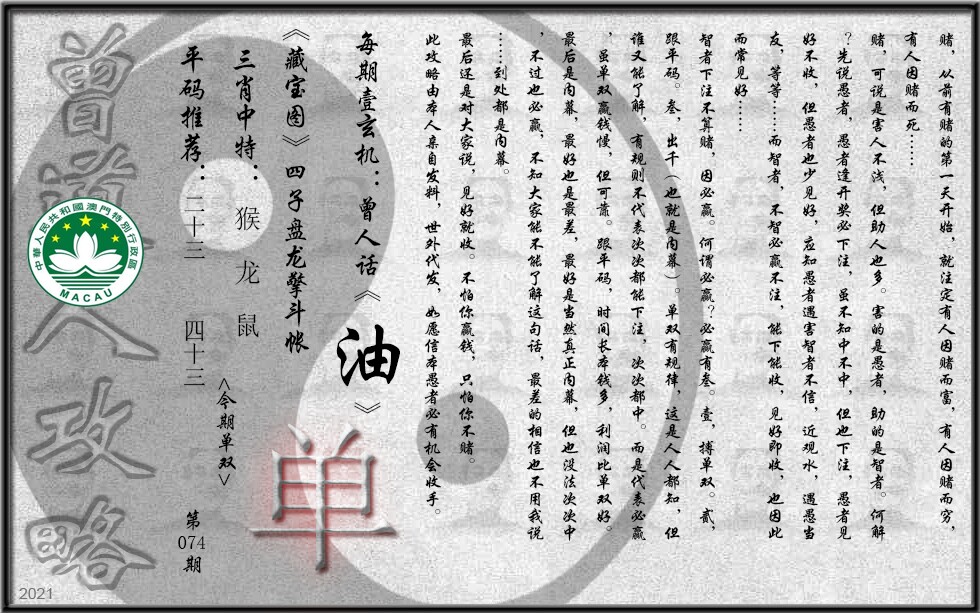 赌，从前有赌的第一天开始，就注定有人因赌而富，有人因赌而穷，
有人因赌而死……
赌，可说是害人不浅，但助人也多。害的是愚者，助的是智者。何解
？先说愚者，愚者逢开奖必下注，虽不知中不中，但也下注，愚者见
好不收，但愚者也少见好，应知愚者遇害智者不信，近观水，遇愚当
友，等等……而智者，不智必赢不注，能下能收，见好即收，也因此
而常见好……
智者下注不算赌，因必赢。何谓必赢？必赢有叁。壹，搏单双。贰，
跟平码。叁，出千（也就是内幕）。单双有规律，这是人人都知，但
谁又能了解，有规则不代表次次都能下注，次次都中。而是代表必赢
，虽单双赢钱慢，但可靠。跟平码，时间长本钱多，利润比单双好。
最后是内幕，最好也是最差，最好是当然真正内幕，但也没法次次中
，不过也必赢，不知大家能不能了解这句话，最差的相信也不用我说
……到处都是内幕。
最后还是对大家说，见好就收。不怕你赢钱，只怕你不赌。
此攻略由本人亲自发料，世外代发，如愿信本愚者必有机会收手。
每期壹玄机：曾人话《油》
《藏宝图》四子盘龙擎斗帐
三肖中特：猴 龙 鼠
平码推荐：二十三 四十三
<今期单双>
单
第
074
期
曾道人攻略
中華人民共和國澳門特別行政區
MACAU
2021